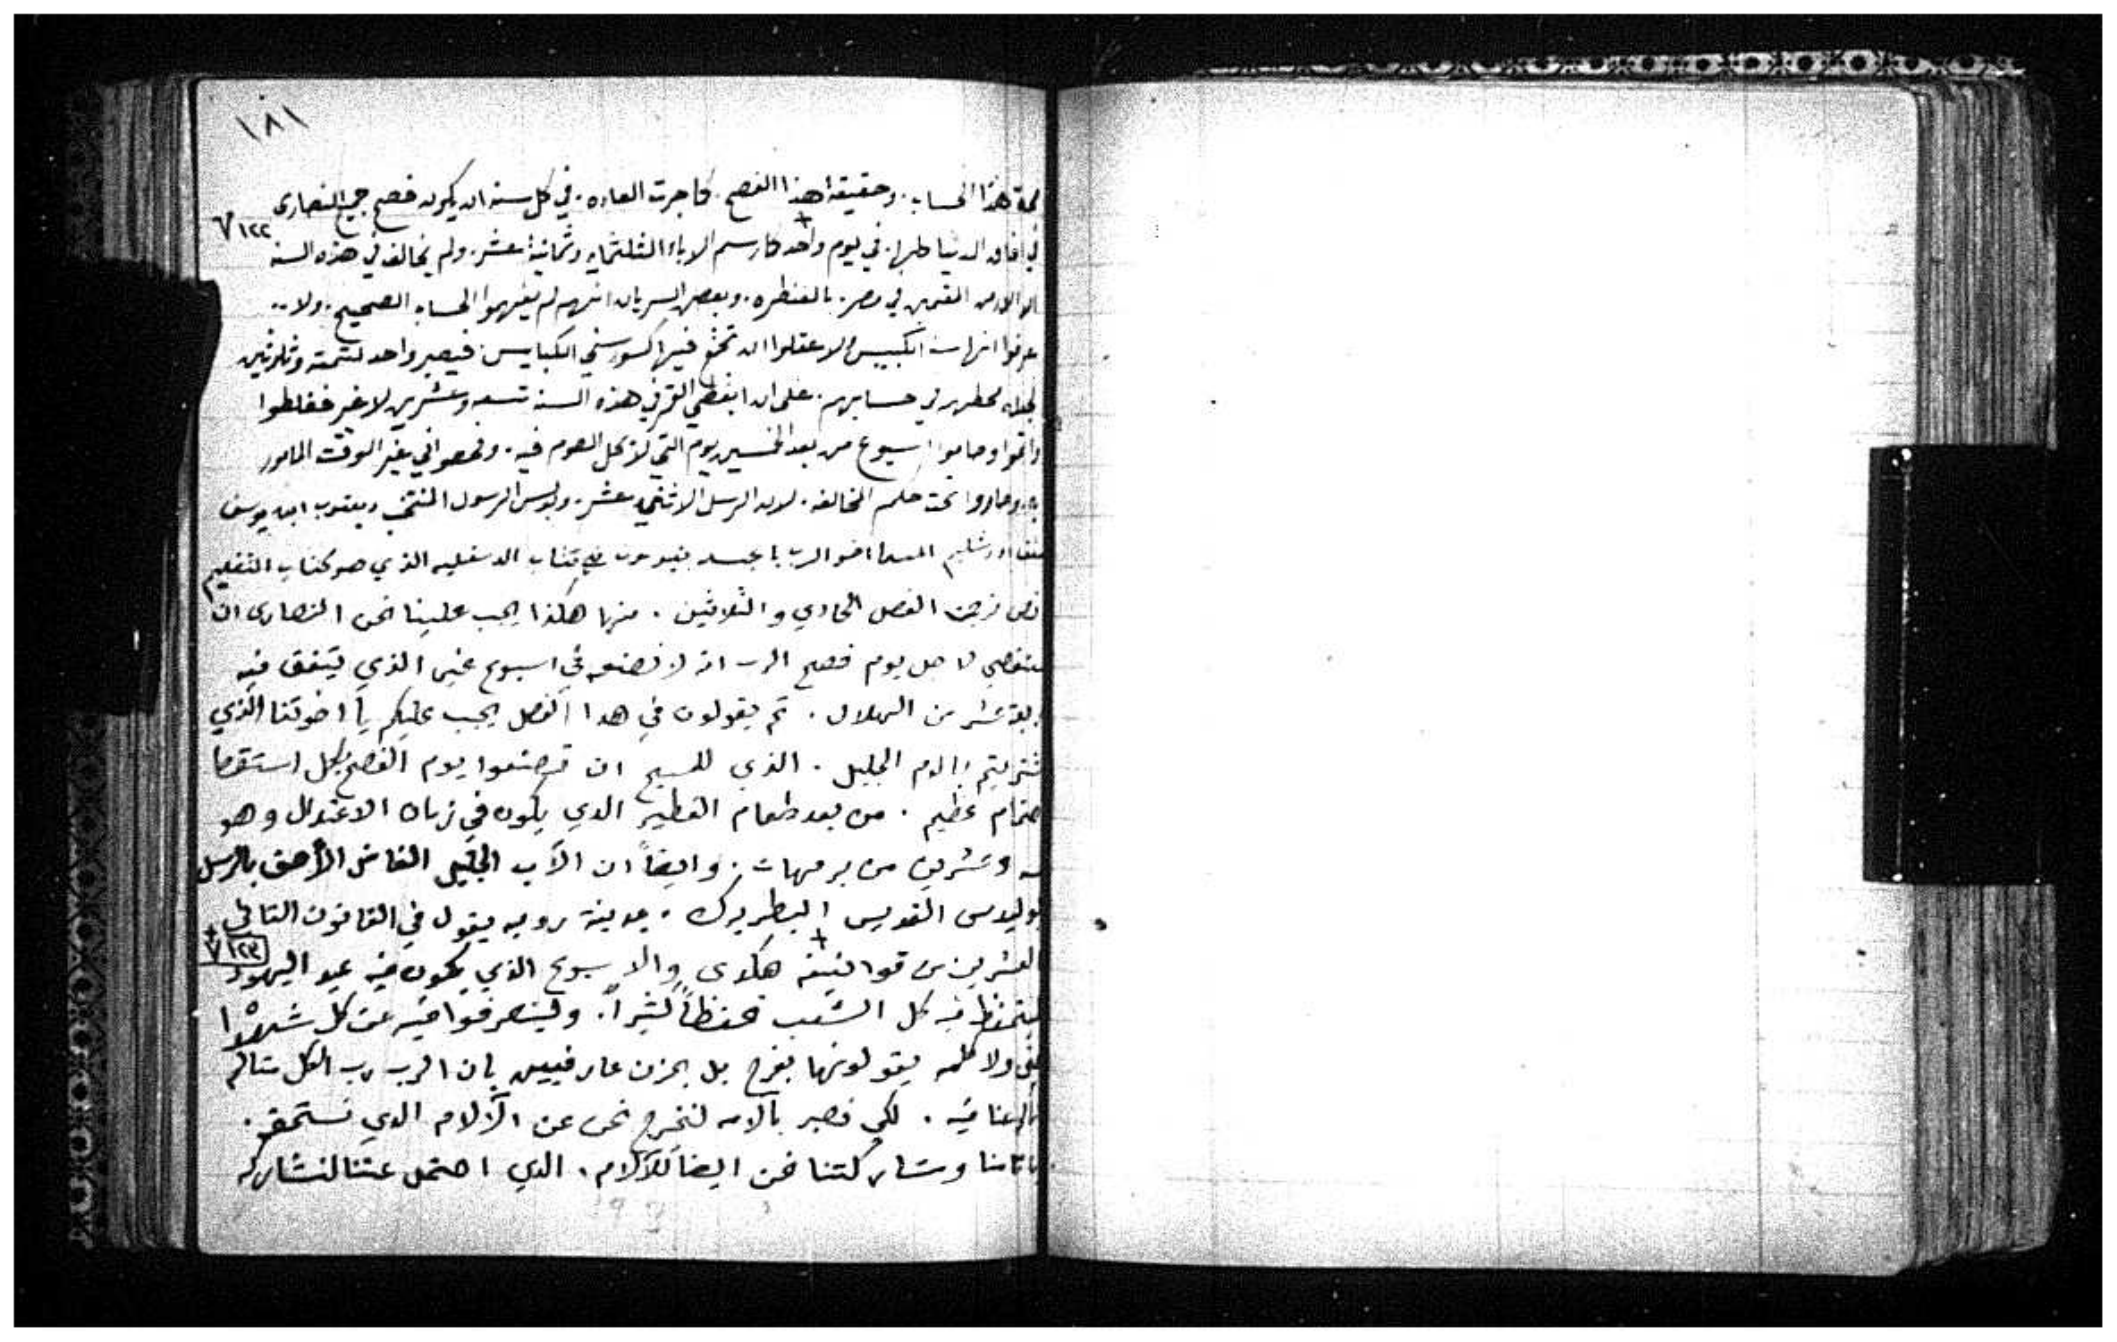 ١٨١
هذا الحساب. وحقيقة هذا الفصح. كما جرت العاده. في كل سنة ان يكون فصح جميع النصارى
١٢٢
الدنيا كلها. في يوم واحد كما رسم الاباء الثلثمايه وثمانية عشر. ولم يخالف في هذه السنة
المقيمين في مصر. بالقنطره. وبعض السريان انهم لم يفهموا الحساب الصحيح. ولا..
عرفوا انها سنة الكبيس ولا عقلوا ان تجتمع فيها كسور سني الكبايس. فيصير واحد لتتمة وثلاثين
في حسابهم. على ان القمر في هذه السنة تسعه وعشرين لا غير فغلطوا
وصاموا اسبوع من بعد الخمسين يوم التي لا يحل الصوم فيه. وفصحوا في غير الوقت المامور
به. وصاروا تحت حكم المخالفه. لان الرسل الاثني عشر. وبولس الرسول المنتخب ويعقوب ابن يوسف
اورشليم اخو الرب بالجسد كتاب الدسقليه الذي هو كتاب التعليم
الفصل الحادي والثلاثين. منها هكذا يجب علينا نحن النصارى ان
نستقصي لاجل يوم فصح الرب ان لا نصنعه في اسبوع غير الذي يتفق فيه
اربعة عشر من الهلال. ثم يقولون في هدا الفصل يجب عليكم يا اخوتنا الذي
اشتريتم بالدم الجليل. الذي للمسيح ان تصنعوا يوم الفصح بكل استقصا
اهتمام عظيم. من بعد طعام الفطير الدي يكون في زمان الاعتدال وهو
وعشرين من برمهات. وايضاً ان الآب الجليل الفاضل الأحق بالرسل
يوليدس القديس البطريرك. مدينة روميه يقول في القانون الثاني
١٢٣
والعشرين من قوانينه هكدى والاسبوع الذي يكون فيه عيد اليهود
ليتحفظ فيه كل الشعب تحفظاً كثيراً. ولينصرفوا فيه عن كل شهوة
ولا كلمه يقولونها بفرح بل بحزن عارفيين بان الرب رب الكل متالم
عنا فيه. لكي نصبر بالامه لنخرج نحن عن الآلام الدي نستحقه.
وشاركتنا نحن ايضاً للآلام. الدي احتمل عنا لنشاركه